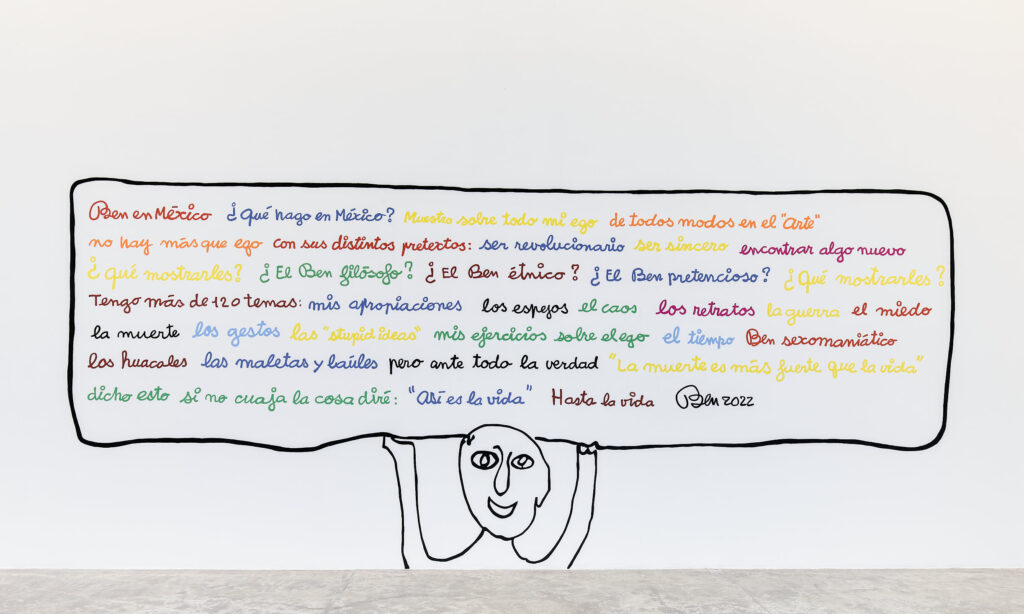 Ben en México ¿Qué hago en México? Muestro sobre todo mi ego de todos modos en el "Arte"
no hay más que ego con sus distintos pretextos: ser revolucionario ser sincero encontrar algo nuevo
¿qué mostrarles? ¿El Ben filósofo? ¿El Ben étnico? ¿El Ben pretencioso? ¿Qué mostrarles?
Tengo más de 120 temas: mis apropiaciones los espejos el caos los retratos la guerra el miedo
la muerte los gestos las "stupid ideas" mis ejercicios sobre el ego el tiempo Ben sexomaniático
los huacales las maletas y baúles pero ante todo la verdad "La muerte es más fuerte que la vida"
dicho esto si no cuaja la cosa diré: "Así es la vida" Hasta la vida Ben 2022